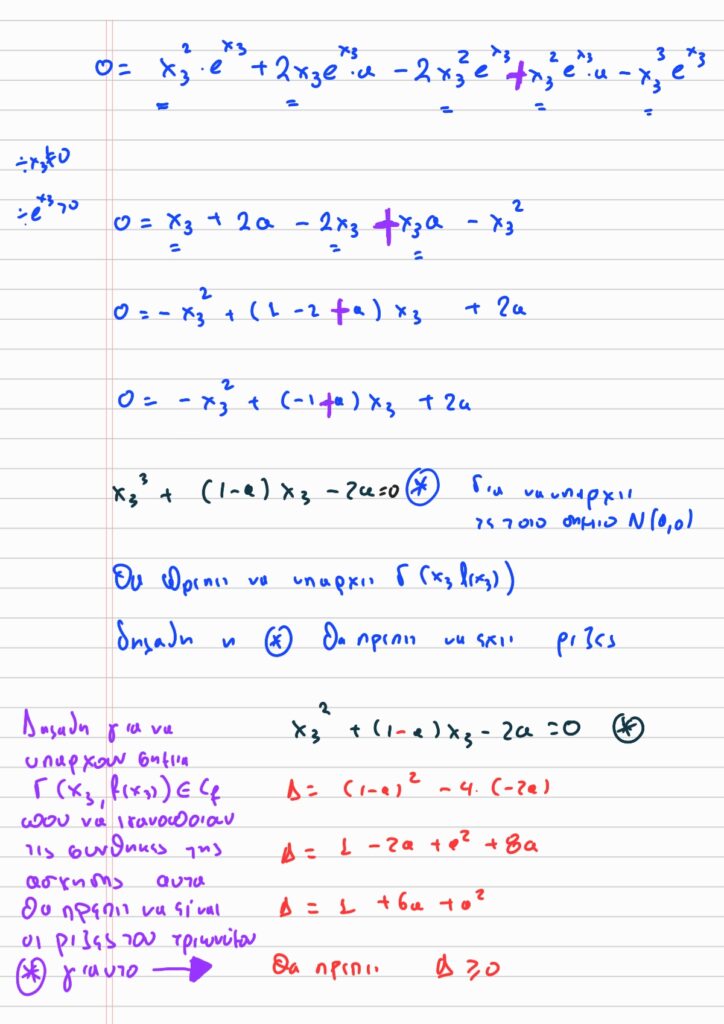 0 = x₃² · e^x₃ + 2x₃e^x₃ · α - 2x₃²e^x₃ + x₃²e^x₃ · α - x₃³e^x₃
÷x₃≠0
÷e^x₃>0
0 = x₃ + 2α - 2x₃ + x₃α - x₃²
0 = -x₃² + (1 - 2 + α) x₃ + 2α
0 = -x₃² + (-1 + α) x₃ + 2α
x₃³ + (1-α) x₃ - 2α = 0 (*) Για να υπαρχει
τετοιο σημειο Ν(0,0)
Θα πρεπει να υπαρχει Γ(x₃ f(x₃))
δηλαδη η (*) θα πρεπει να εχει ριζες
Δηλαδη για να
υπαρχουν σημεια
Γ(x₃, f(x₃)) ∈ Cf
που να ικανοποιουν
τις συνθηκες της
ασκησης αυτα
θα πρεπει να ειναι
οι ριζες του τριωνυμου
(*) γιαυτο →
x₃² + (1-α) x₃ - 2α = 0 (*)
Δ = (1-α)² - 4 · (-2α)
Δ = 1 - 2α + α² + 8α
Δ = 1 + 6α + α²
Θα πρεπει Δ ≥ 0